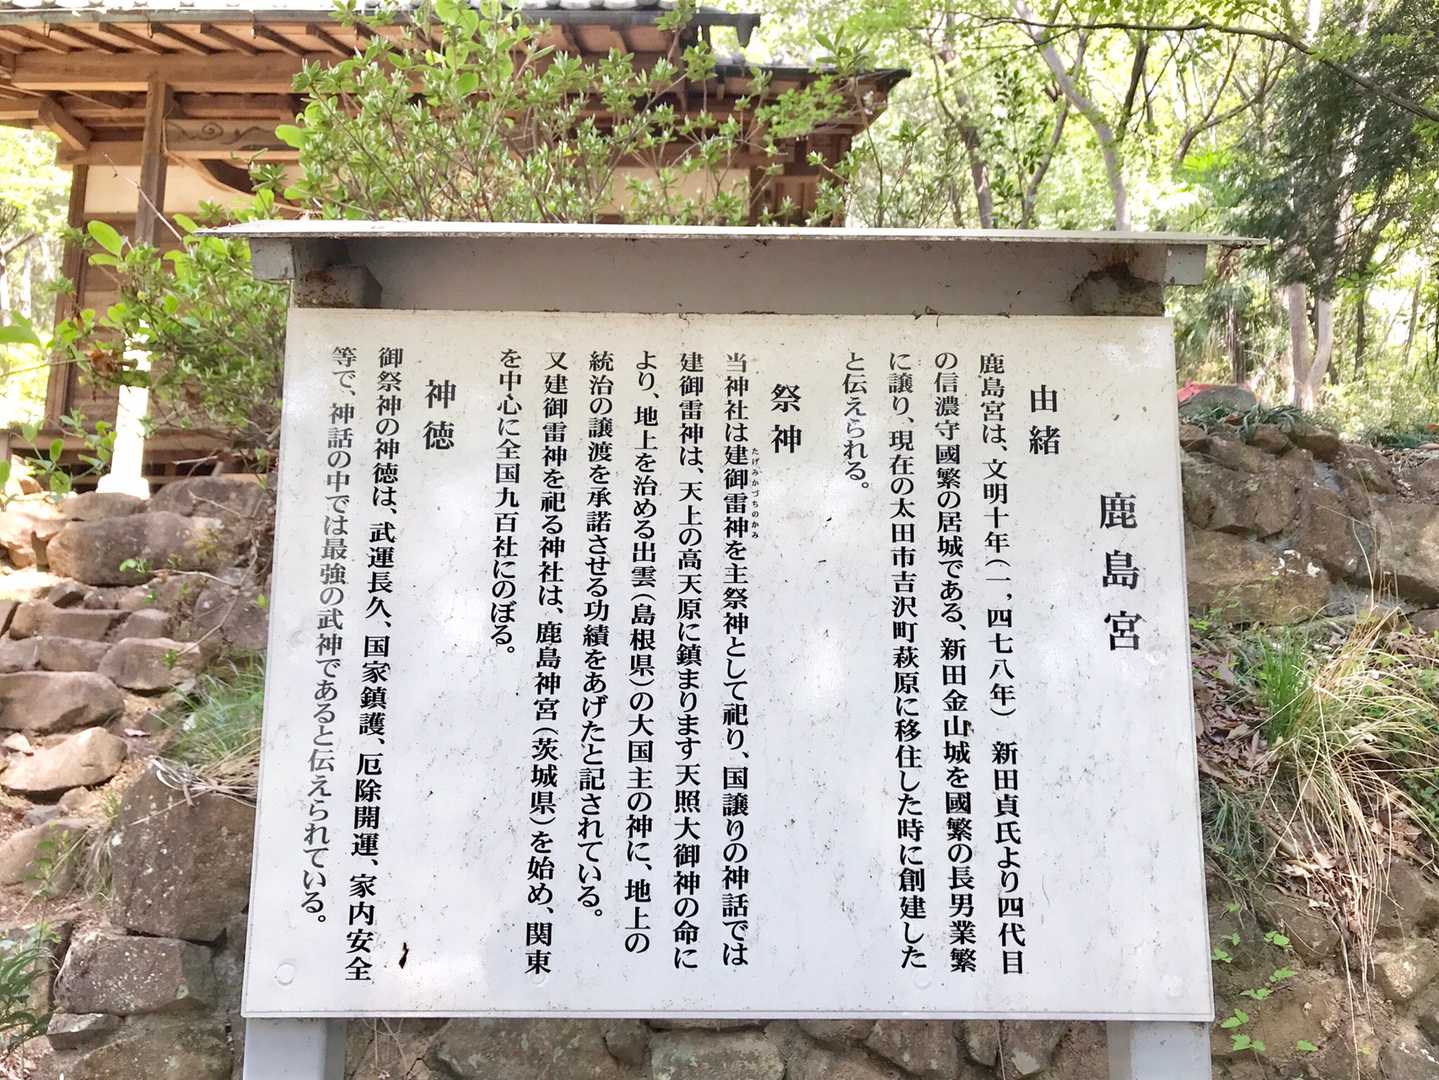 鹿島宮
由緒
鹿島宮は、文明十年(一,四七八年) 新田貞氏より四代目
の信濃守國繁の居城である、新田金山城を國繁の長男業繁
に譲り、現在の太田市吉沢町萩原に移住した時に創建した
と伝えられる。
祭神
当神社は建御雷神を主祭神として祀り、国譲りの神話では
たけみかづちのかみ
建御雷神は、天上の高天原に鎮まります天照大御神の命に
より、地上を治める出雲(島根県)の大国主の神に、地上の
統治の譲渡を承諾させる功績をあげたと記されている。
又建御雷神を祀る神社は、鹿島神宮(茨城県)を始め、関東
を中心に全国九百社にのぼる。
神徳
御祭神の神徳は、武運長久、国家鎮護、厄除開運、家内安全
等で、神話の中では最強の武神であると伝えられている。